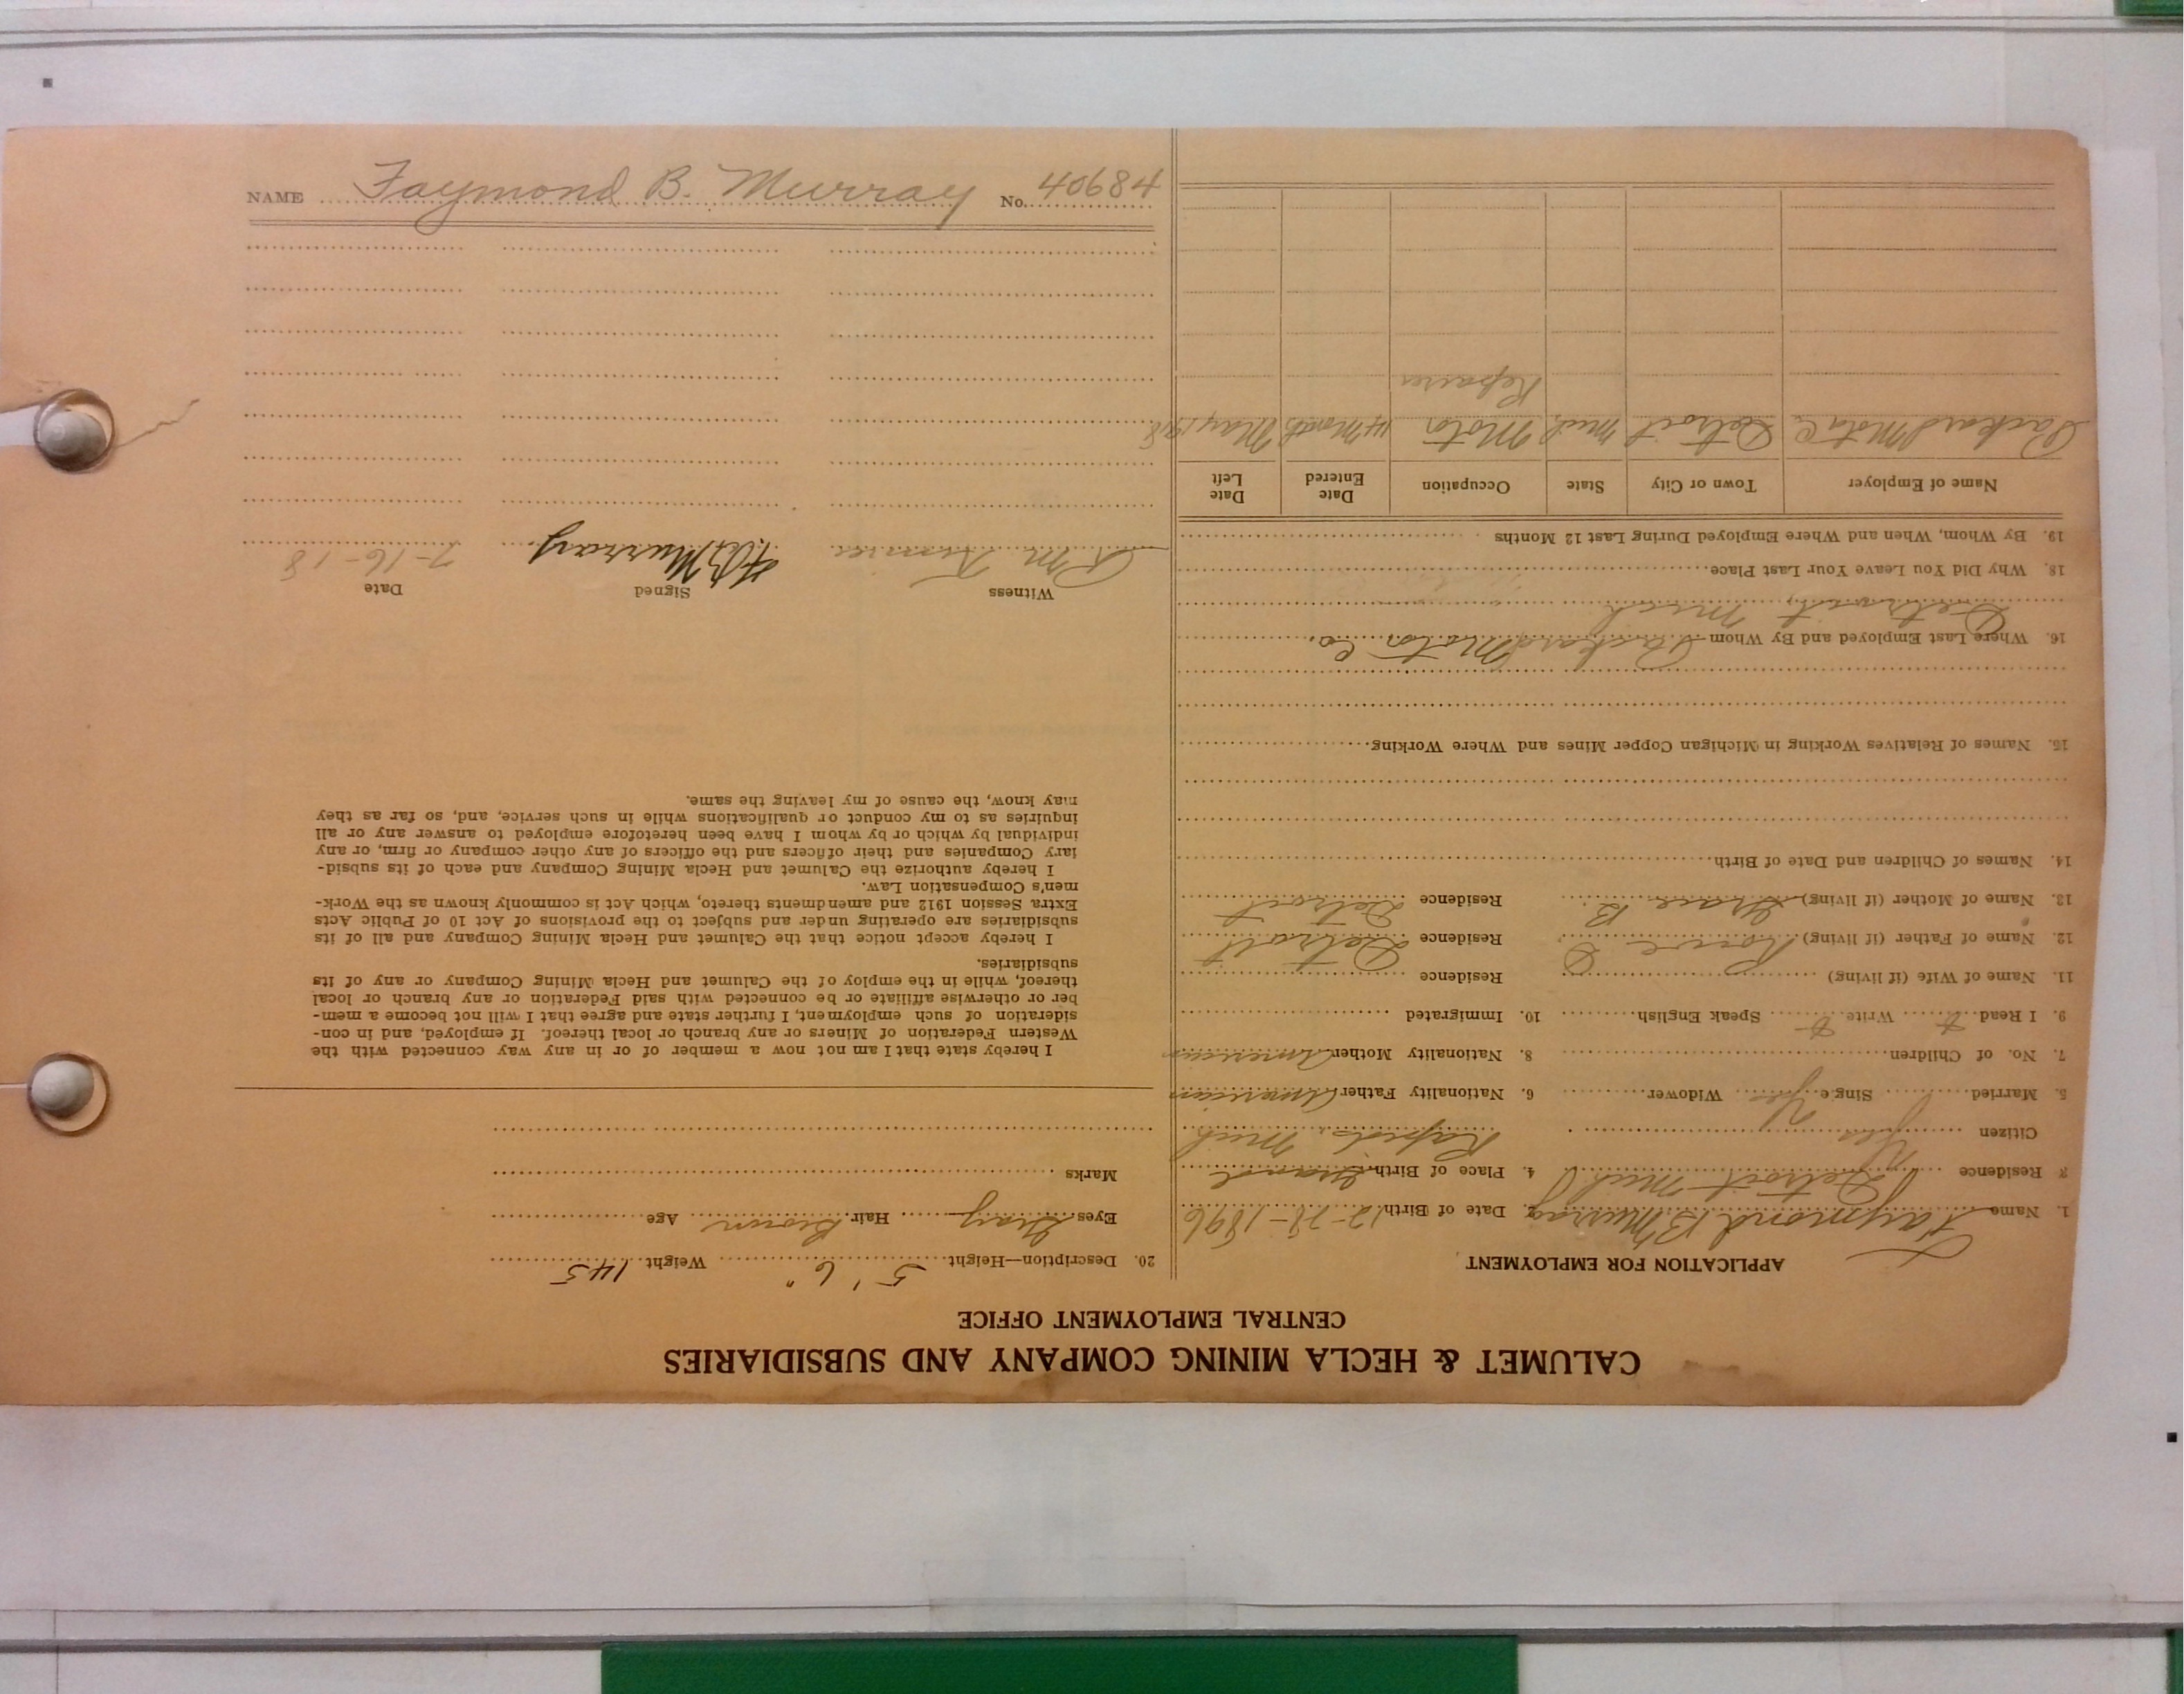 CALUMET & HECLA MINING COMPANY AND SUBSIDIARIES
CENTRAL EMPLOYMENT OFFICE
APPLICATION FOR EMPLOYMENT
1. Name Faymond B Murray 2. Date of Birth 12-28-1896
3 Residence Detroit Mich 4. Place of Birth Grand
Citizen Yes Rapids, Mich
5. Married Single Yes Widower 6. Nationality Father American
7. No. of Children 8. Nationality Mother American
9. I Read Write Speak English 10. Immigrated
11. Name of Wife (if living) Residence
12. Name of Father (if living) D Residence Detroit
13. Name of Mother (if living) Grace B. Residence Detroit
14. Names of Children and Date of Birth
15. Names of Relatives Working in Michigan Copper Mines and Where Working
16. Where Last Employed and By Whom Packard Motor Co.
Detroit, Mich
18. Why Did You Leave Your Last Place
19. By Whom, When and Where Employed During Last 12 Months
Name of Employer Town or City State Occupation Date Entered Date Left
Packard Motor C Detroit Mich Motor 14 Month May, 1918
Repairer
20. Description—Height 5' 6" Weight 145
Eyes Gray Hair Brown Age
Marks
I hereby state that I am not now a member of or in any way connected with the
Western Federation of Miners or any branch or local thereof. If employed, and in con-
sideration of such employment, I further state and agree that I will not become a mem-
ber or otherwise affiliate or be connected with said Federation or any branch or local
thereof, while in the employ of the Calumet and Hecla Mining Company or any of its
subsidiaries.
I hereby accept notice that the Calumet and Hecla Mining Company and all of its
subsidiaries are operating under and subject to the provisions of Act 10 of Public Acts
Extra Session 1912 and amendments thereto, which Act is commonly known as the Work-
men's Compensation Law.
I hereby authorize the Calumet and Hecla Mining Company and each of its subsid-
iary Companies and their officers and the officers of any other company or firm, or any
individual by which or by whom I have been heretofore employed to answer any or all
inquiries as to my conduct or qualifications while in such service, and, so far as they
may know, the cause of my leaving the same.
Witness Signed Date
F.B. Murray 7-16-18
NAME Faymond B. Murray No. 40684